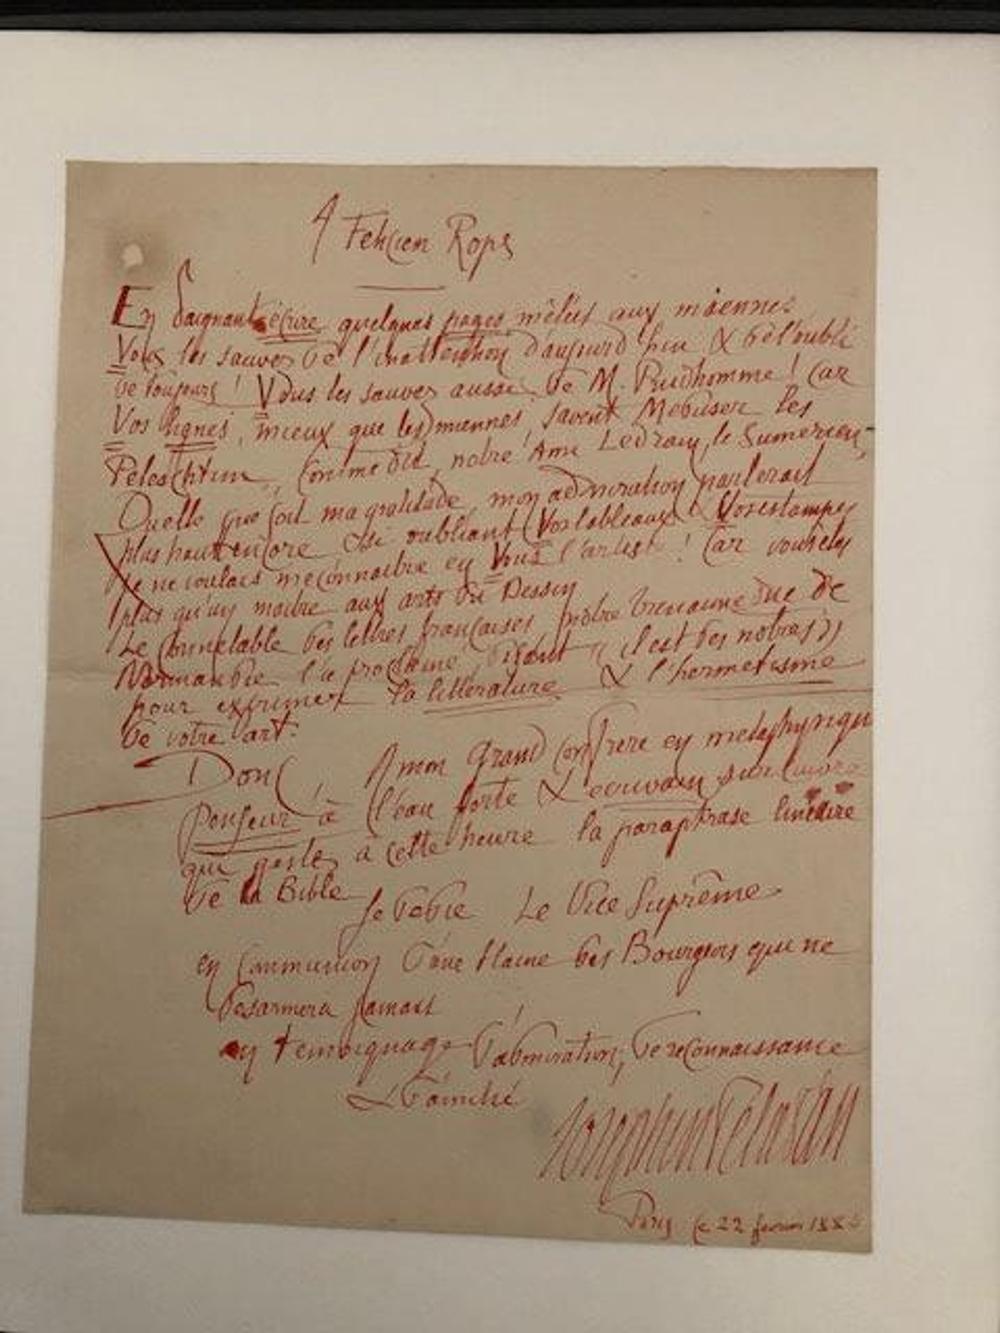 A Felicien Rops
En daignant écrire quelques pages mêlées aux miennes
Vous les sauvez de l'inattention d'aujourd'hui & de l'oubli
de toujours ! Vous les sauvez aussi de M. Prudhomme ! Car
Vos lignes, mieux que les miennes, savent Meduser les
Peleschtim, comme dit notre Ami Ledrain, le Sumerien,
Quelle que soit ma gratitude, mon admiration parlerait
plus haut encore si oubliant Vos tableaux & Vos estampes
je ne voulais méconnaitre en Vous l'artiste ! Car vous êtes
plus qu'un maitre aux arts du Dessin
Le Connetable des lettres françaises, duc de
Normandie l'a proclamé, disant « il est des notres »
pour exprimer la litterature & l'hermetisme
de votre art.
Donc, A mon Grand Confrere en metaphysique
Penseur à l'eau forte & ecrivain sur cuivre
qui à cette heure la paraphrase linéaire
de la Bible
Je dedie Le Vice Suprême
en Communion d'une Haine des Bourgeois qui ne
desarmera jamais
en temoignage d'admiration, de reconnaissance
& d'amitié
Josephin Péladan
Paris le 22 fevrier 188